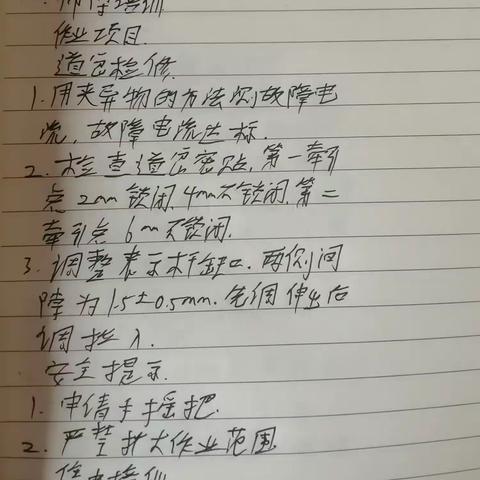 师傅培训
作业项目.
道岔检修.
1.用夹异物的方法测故障电
流,故障电流达标.
2.检查道岔密贴,第一牵引
点2mm锁闭,4mm不锁闭,第二
牵引点6mm不锁闭.
3.调整表示杆缺口.两侧间
隙为1.5±0.5mm.先调伸出后
调拉入.
安全提示.
1.申请手摇把.
2.严禁扩大作业范围